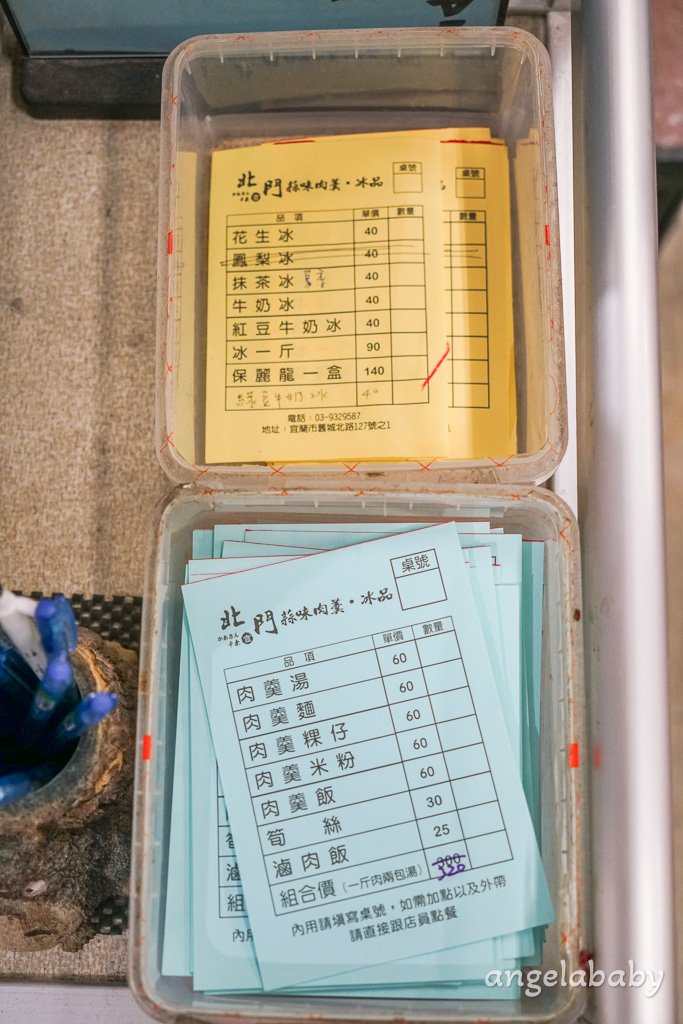 北門蒜味肉羹・冰品
桌號
桌號
品項 單價 數量
數量
花生冰 40
鳳梨冰 40
抹茶冰 40
牛奶冰 40
紅豆牛奶冰 40
冰一斤 90
保麗龍一盒 140
綠豆牛奶冰 40
電話：03-9329587
地址：宜蘭市舊城北路127號之1
北門蒜味肉羹・冰品
桌號
品項 單價 數量
肉羹湯 60
肉羹麵 60
肉羹粿仔 60
肉羹米粉 60
肉羹飯 60
筍絲 30
滷肉飯 25
組合價（一斤肉兩包湯） 300 330
內用請填寫桌號，如需加點以及外帶
請直接跟店員點餐
筍
滷
組
內用
angelababy